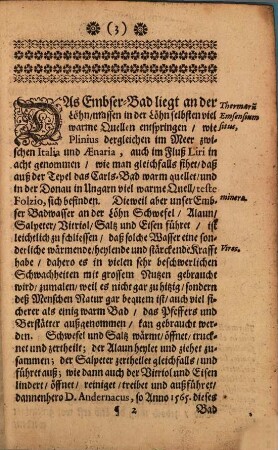 (3)
DAs Embser-Bad liegt an der
Löhn/massen in der Löhn selbsten viel
warme Quellen entspringen / wie
Plinius dergleichen im Meer zwi-
schen Italia und Ænaria, auch im Fluß Liri in
acht genommen / wie man gleichfalls sihet / daß
auß der Tepel das Carls-Bad warm quellet / und
in der Donau in Ungarn viel warme Quell / teste
Folzio, sich befinden. Dieweil aber unser Emb-
ser Badwasser an der Löhn Schwefel / Alaun /
Salpeter / Vitriol / Saltz und Eisen führet / ist
leichtlich zu schliessen / daß solche Wasser eine son-
derliche wärmende / heylende und stärckende Krafft
habe / dahero es in vielen sehr beschwerlichen
Schwachheiten mit grossem Nutzen gebraucht
wird / zumalen / weil es nicht gar zu hitzig / sondern
deß Menschen Natur gar bequem ist / auch viel si-
cherer als einig warm Bad / das Pfeffers und
Berstätter außgenommen / kan gebraucht wer-
den. Schwefel und Saltz wärmt / öffnet / truck-
net und zertheilt; der Alaun heylet und ziehet zu-
sammen; der Salpeter zertheilet gleichfalls / und
führet auß; wie dann auch der Vitriol und Eisen
lindert / öffnet / reiniget / treibet und außführet /
dannenhero D. Andernacus, so Anno 1565. dieses
2
Bad
Thermarũ
Emsensium
situs,
minera.
Vires.